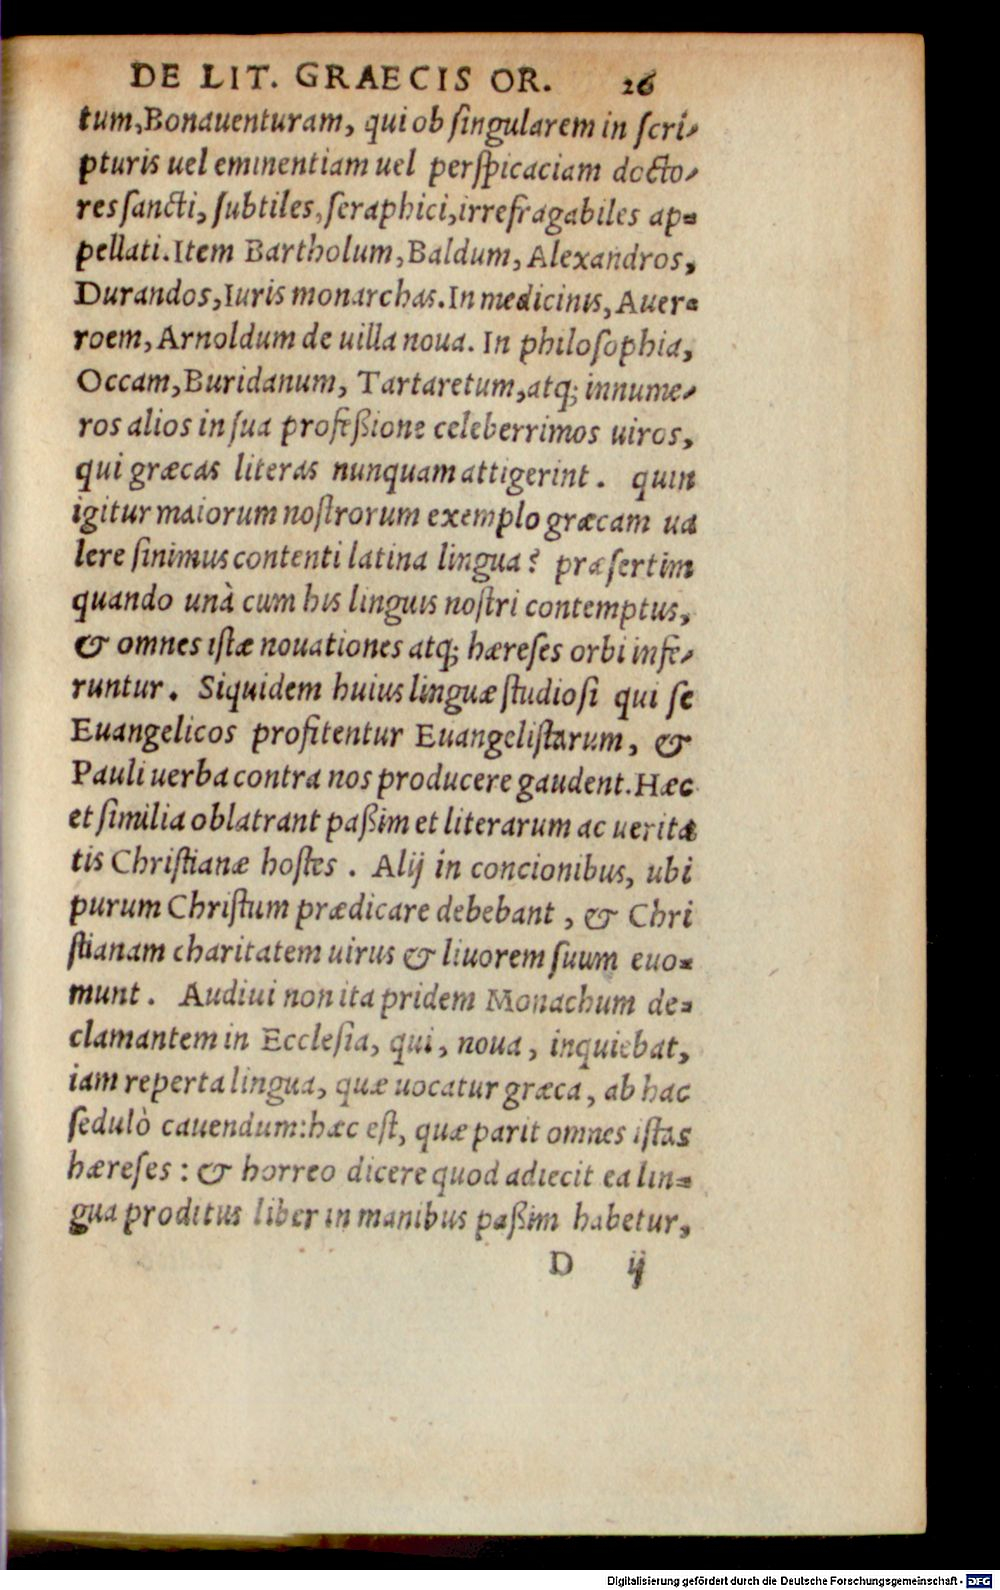 DE LIT. GRAECIS OR. 26
tum,Bonauenturam, qui ob ſingularem in ſcri⸗
pturis uel eminentiam uel perſpicaciam docto⸗
res ſancti, ſubtiles, ſeraphici,irrefragabiles ap⸗
pellati. Item Bartholum, Baldum, Alexandros,
Durandos, Iuris monarchas. In medicinis, Auer⸗
roem, Arnoldum de uilla noua. In philoſophia,
Occam, Buridanum, Tartaretum, atq; innume⸗
ros alios in ſua profeßione celeberrimos uiros,
qui græcas literas nunquam attigerint. quin
igitur maiorum noſtrorum exemplo græcam ua
lere ſinimus contenti latina lingua? præſertim
quando unà cum his linguis noſtri contemptus,
& omnes iſtæ nouationes atq; hæreſes orbi infe⸗
runtur. Siquidem huius linguæ ſtudioſi qui ſe
Euangelicos profitentur Euangeliſtarum, &
Pauli uerba contra nos producere gaudent. Hæc
et ſimilia oblatrant paßim et literarum ac uerita
tis Chriſtianæ hoſtes. Alij in concionibus, ubi
purum Chriſtum prædicare debebant, & Chri
ſtianam charitatem uirus & liuorem ſuum euo⸗
munt. Audiui non ita pridem Monachum de⸗
clamantem in Eccleſia, qui, noua, inquiebat,
iam reperta lingua, quæ uocatur græca, ab hac
ſedulò cauendum: hæc eſt, quæ parit omnes iſtas
hæreſes: & horreo dicere quod adiecit ea lin⸗
gua proditus liber in manibus paßim habetur,
D ij
Digitalisierung gefördert durch die Deutsche Forschungsgemeinschaft - DFG